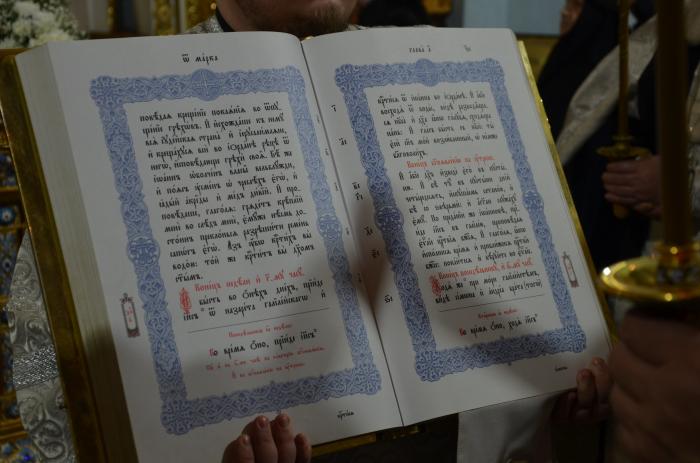 Ѿ ма́рка
повѣ́даѧ кр҃ще́нїе покаѧ́нїѧ во ѿпꙋ-
ще́нїе грѣхѡ́въ. И҆ и҆схожда́ше къ немꙋ̀
всѧ̀ і҆ꙋде́йскаѧ страна̀ и҆ і҆ерⷭ҇ли́мѧне,
и҆ кр҃ща́хꙋсѧ всѝ во і҆ѻрда́нѣ рѣцѣ̀ ѿ
негѡ̀, и҆сповѣ́дающе грѣхѝ своѧ̑. Бѣ́ же
і҆ѡа́ннъ ѡ҆болче́нъ власы̑ вельблꙋ̑жди,
и҆ по́ѧсъ ᲂу҆сме́нъ ѡ҆ чре́слѣхъ є҆гѡ̀, и҆
ꙗ҆ды́й а҆кри̑ды и҆ ме́дъ ди́вїй. И҆ про-
повѣ́даше, глаго́лѧ: грѧде́тъ крѣ́плїй
менє̀ во слѣ́дъ менє̀, є҆мꙋ́же нѣ́смь до-
сто́инъ прекло́ньсѧ разрѣши́ти реме́нь
сапѡ́гъ є҆гѡ̀. А҆́зъ ᲂу҆́бѡ кр҃ти́хъ вы̀
водо́ю: то́й же кр҃ти́тъ вы̀ дх҃омъ
ст҃ы́мъ.
бы́сть во ѻ҆́нѣхъ дне́хъ, прїи́де
і҆и҃съ ѿ назаре́та галїле́йскагѡ и҆
Во вре́мѧ ѻ҆́но, прїи́де і҆и҃съ
кр҃ти́сѧ
глава̀ а҃
кр҃ти́сѧ ѿ і҆ѡа́нна во і҆ѻрда́нѣ. И҆ а҆́бїе
восходѧ̀ ѿ воды̀, ви́дѣ разводѧ́ща-
сѧ нб҃са̀ и҆ дх҃ъ ꙗ҆́кѡ го́лꙋбь, сходѧ́щъ
на́нь. И҆ гла́съ бы́сть съ нб҃сѐ: ты̀
є҆сѝ сн҃ъ мо́й возлю́бленный, ѡ҆ не́мже
бл҃говоли́хъ.
И҆ а҆́бїе дх҃ъ и҆зведѐ є҆го̀ въ пꙋсты́-
ню. И҆ бѣ̀ тꙋ̀ въ пꙋсты́ни дні́й
четы́редесѧть, и҆скꙋша́емь сатано́ю, и҆
бѣ̀ со ѕвѣрьмѝ: и҆ а҆́гг҃ли слꙋжа́хꙋ
є҆мꙋ̀. По преда́нїи же і҆ѡа́нновѣ, прїи́-
де і҆и҃съ въ галїле́ю, проповѣ́даѧ
є҆ѵⷢ҇лїе црⷭ҇твїѧ бж҃їѧ, и҆ глаго́лѧ, ꙗ҆́кѡ
и҆спо́лнисѧ вре́мѧ и҆ прибли́жисѧ црⷭ҇твїе
бж҃їе: пока́йтесѧ и҆ вѣ́рꙋйте во є҆ѵⷢ҇лїе.
Ходѧ́ же при мо́ри галїле́йстѣмъ,
ви́дѣ сі́мѡна и҆ а҆ндре́а бра́та (тогѡ̀)
Во вре́мѧ ѻ҆́но, ходѧ̀ і҆и҃съ